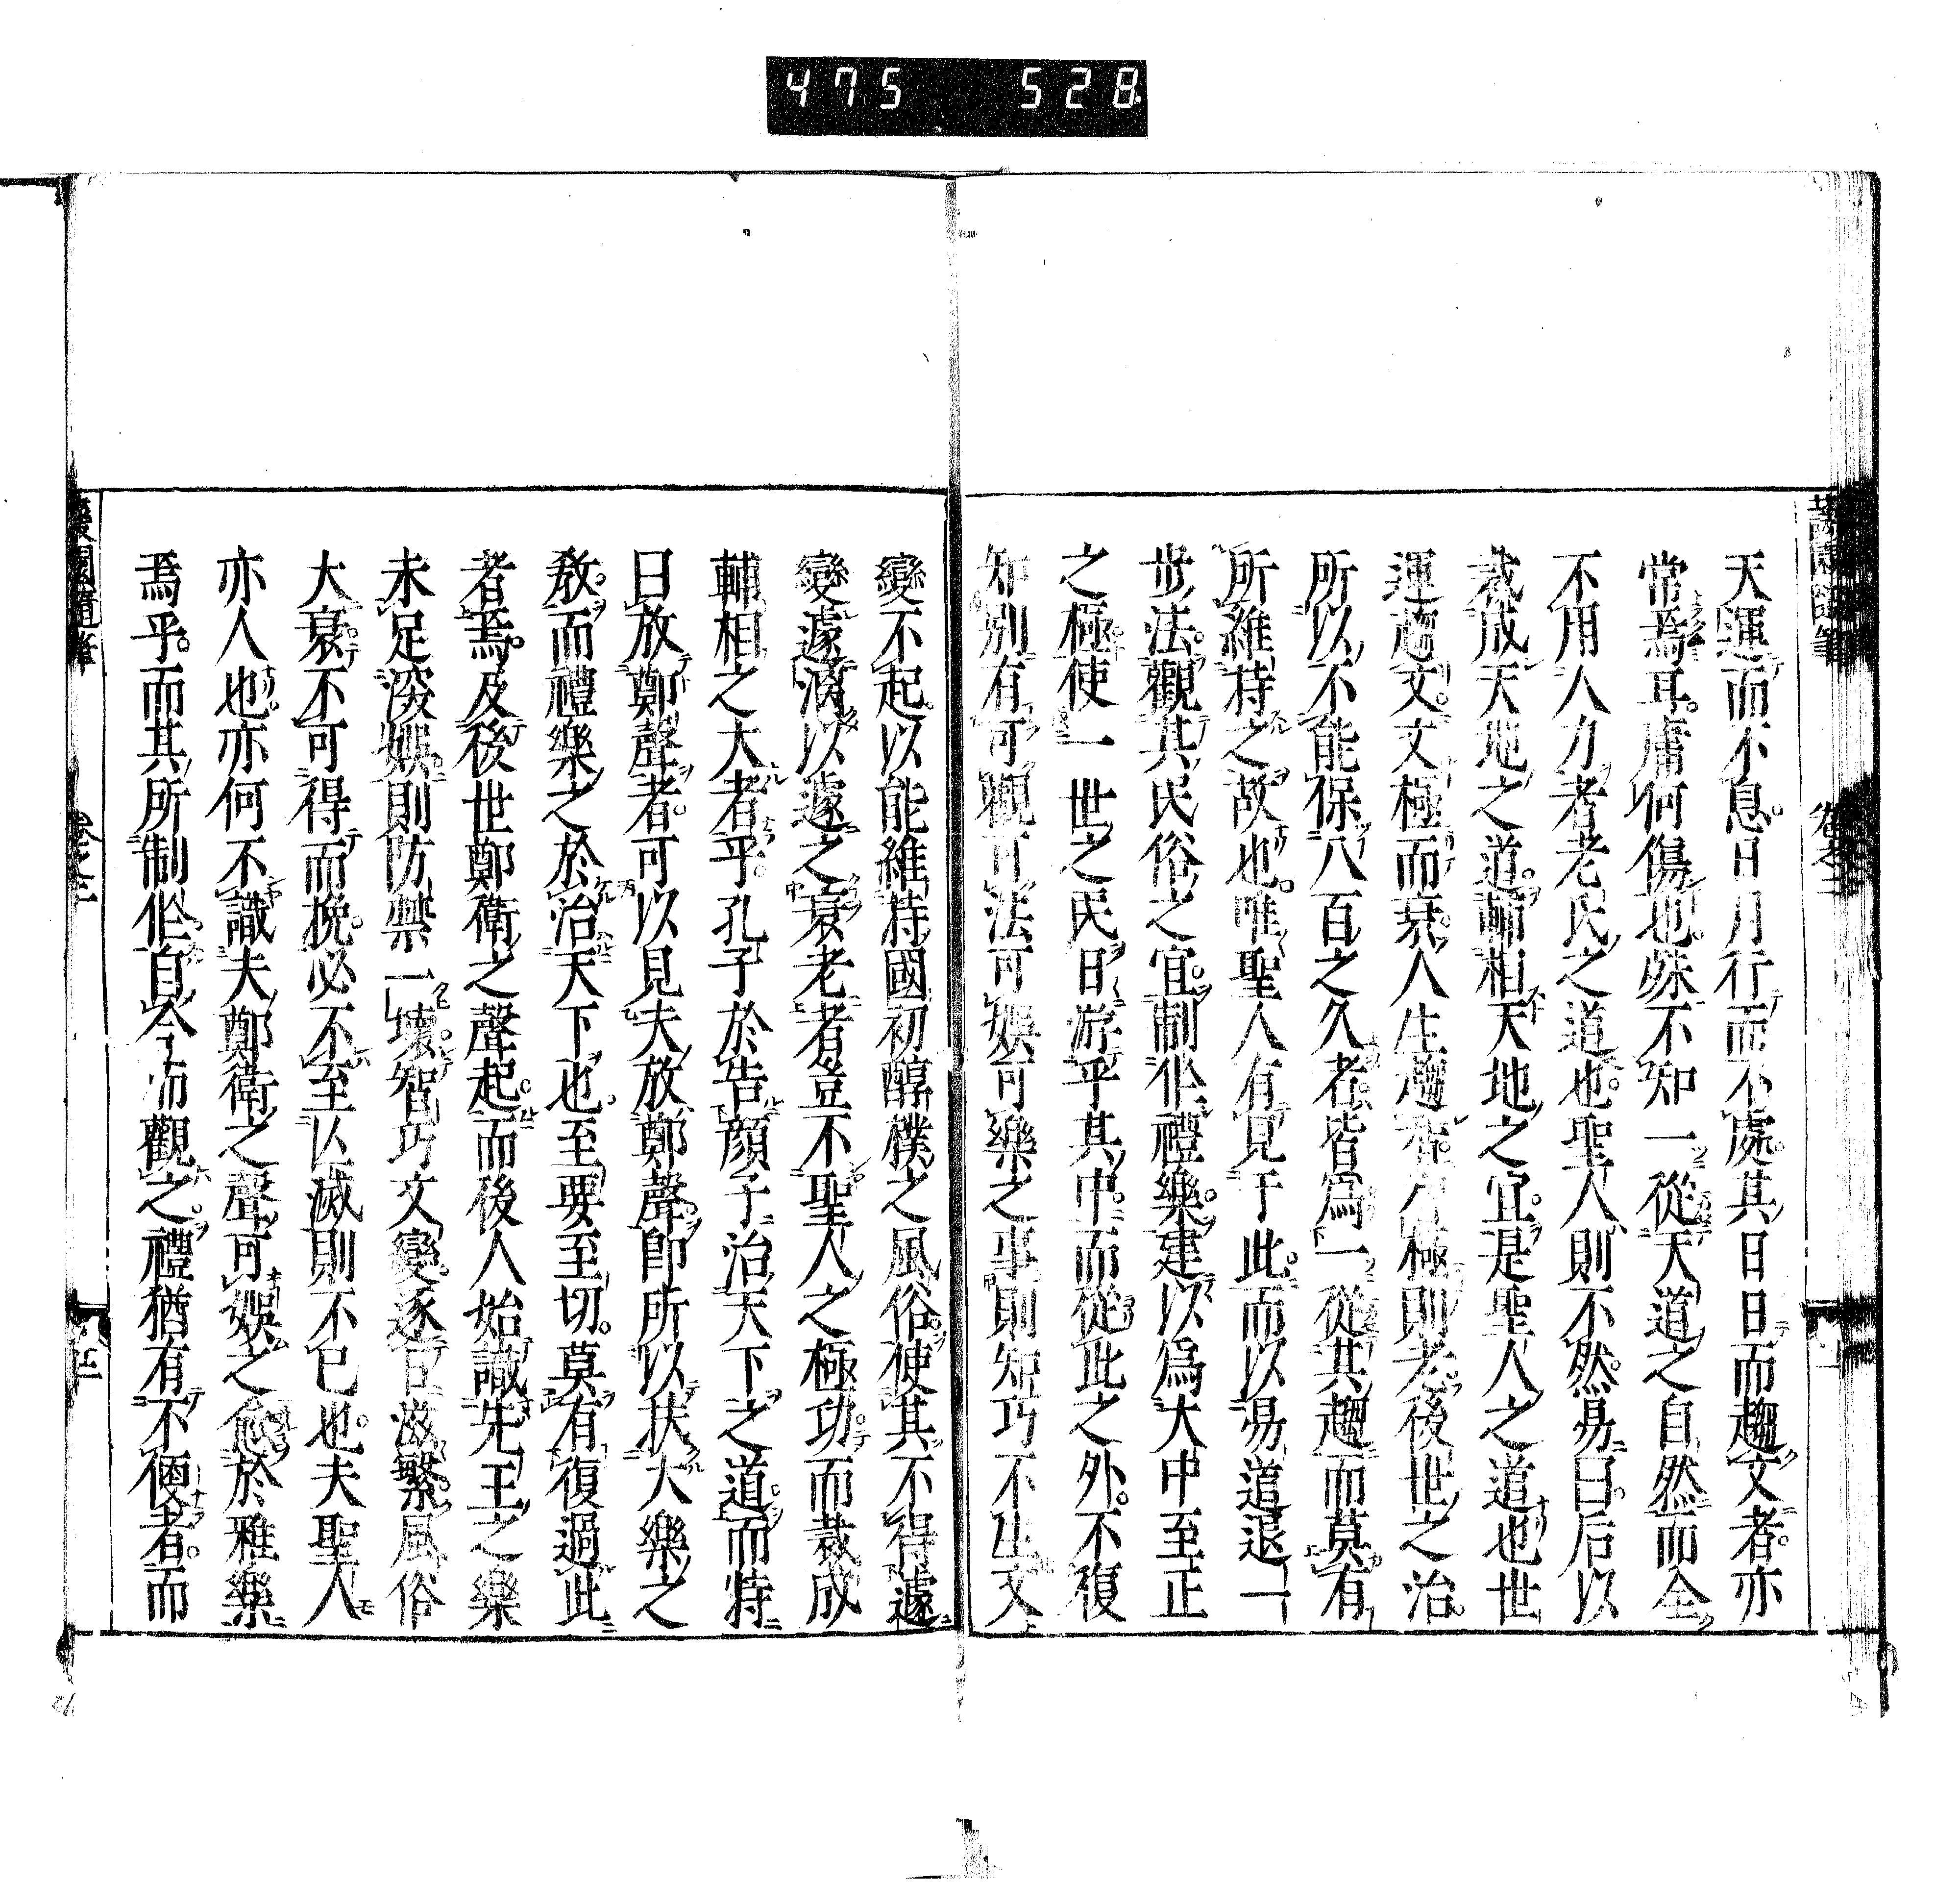 475 528
天運而不息。日月行而不處。其日日而趨文者。亦
常焉耳。庸何傷也。殊不知一從天道之自然。而全
不用人力者。老氏之道也。聖人則不然。易曰。后以
裁成天地之道。輔相天地之宜。是聖人之道也。世
運趨文。文極而衰。人生趨老。老極則 後世之治。
所以不能保八百之久者。皆爲一從其趨而莫有
所維持之故也。唯聖人有見于此。而以易道退一
步法。觀其民俗之宜。制作禮樂。建以爲大中至正
之極。使一世之民日游乎其中。而從此之外。不復
知別有可觀可法可娛可樂之事。則知巧不生。文
變不起。以能維持國初醇樸之風俗。使其不得遽
變遽漓以遽之衰老者。豈不聖人之極功。而裁成
輔相之大者乎。孔子於告顏子治天下之道。而特
曰放鄭聲者。可以見夫放鄭聲。卽所以扶大樂之
敎。而禮樂之於治天下也。至要至切。莫有復過此
者焉。及後世鄭衛之聲起。而後人始識先王之樂
未足深娛。則防禁一壞。智巧文變。逐日滋繁。風俗
大衰。不可得而挽。必不至亾滅則不已也。夫聖人
亦人也。亦何不識夫鄭衛之聲可娛之愈於雅樂
焉乎。而其所制作。自今而觀之。禮猶有不便者。而
蘐園隨筆 卷之二